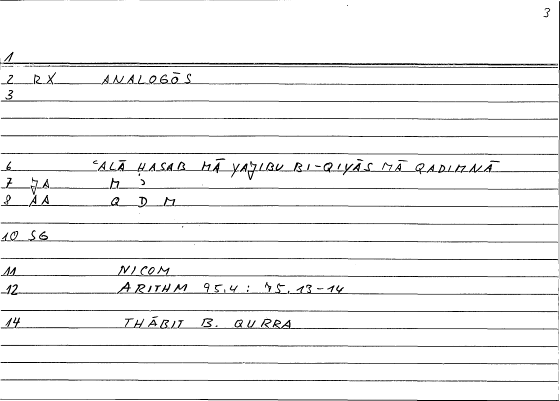 3
1
2 RX ANALOGŌS
3
6 ʿALĀ ḤASAB MĀ YAǦIBU BI-QIYĀS MĀ QADIMNĀ
7 ǦA M Ɔ
8 AA Q D M
10 SG
11 NICOM
12 ARITHM 95.4 : 75.13-14
14 THĀBIT B. QURRA